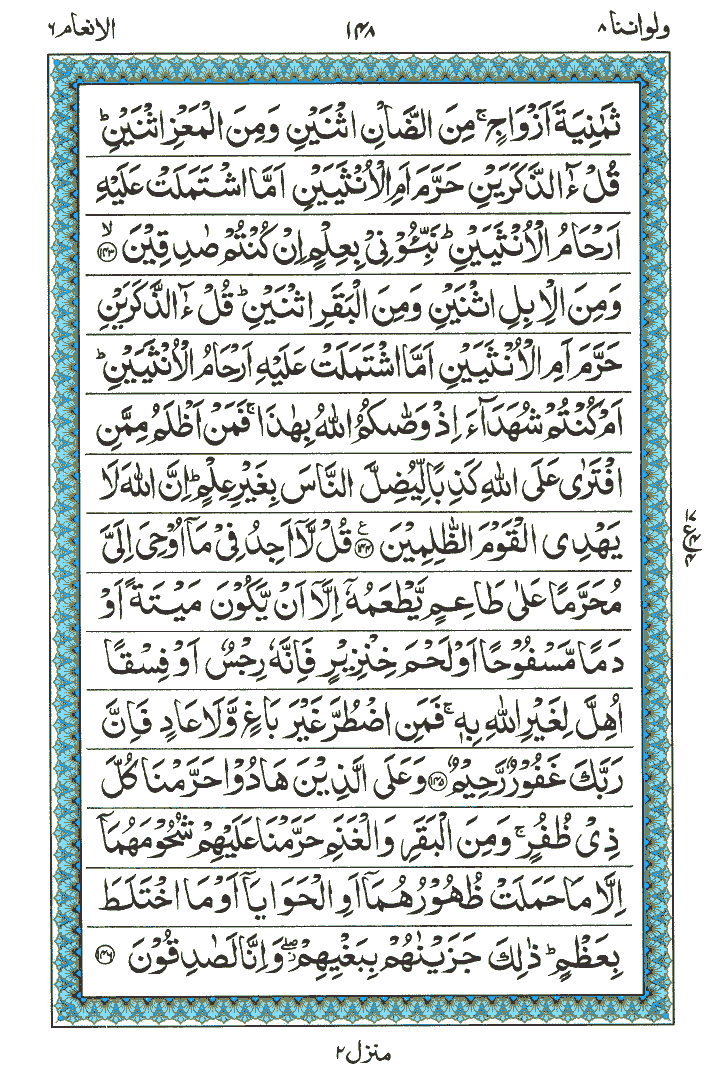 ولواننا ۸ ۱۴۸ الانعام ۶
ثَمٰنِیَةَ اَزْوَاجٍ ۚ مِنَ الضَّاْنِ اثْنَیْنِ وَمِنَ الْمَعْزِ اثْنَیْنِ ؕ
قُلْ ءٰٓالذَّكَرَیْنِ حَرَّمَ اَمِ الْاُنْثَیَیْنِ اَمَّا اشْتَمَلَتْ عَلَیْهِ
اَرْحَامُ الْاُنْثَیَیْنِ ؕ نَبِّـُٔوْنِیْ بِعِلْمٍ اِنْ كُنْتُمْ صٰدِقِیْنَ ۙ﴿۱۴۳﴾
وَمِنَ الْاِبِلِ اثْنَیْنِ وَمِنَ الْبَقَرِ اثْنَیْنِ ؕ قُلْ ءٰٓالذَّكَرَیْنِ
حَرَّمَ اَمِ الْاُنْثَیَیْنِ اَمَّا اشْتَمَلَتْ عَلَیْهِ اَرْحَامُ الْاُنْثَیَیْنِ ؕ
اَمْ كُنْتُمْ شُهَدَآءَ اِذْ وَصّٰىكُمُ اللّٰهُ بِهٰذَا ۚ فَمَنْ اَظْلَمُ مِمَّنِ
افْتَرٰی عَلَی اللّٰهِ كَذِبًا لِّیُضِلَّ النَّاسَ بِغَیْرِ عِلْمٍ ؕ اِنَّ اللّٰهَ لَا
یَهْدِی الْقَوْمَ الظّٰلِمِیْنَ ﴿۱۴۴﴾ ع قُلْ لَّاۤ اَجِدُ فِیْ مَاۤ اُوْحِیَ اِلَیَّ
مُحَرَّمًا عَلٰی طَاعِمٍ یَّطْعَمُهٗۤ اِلَّاۤ اَنْ یَّكُوْنَ مَیْتَةً اَوْ
دَمًا مَّسْفُوْحًا اَوْ لَحْمَ خِنْزِیْرٍ فَاِنَّهٗ رِجْسٌ اَوْ فِسْقًا
اُهِلَّ لِغَیْرِ اللّٰهِ بِهٖ ۚ فَمَنِ اضْطُرَّ غَیْرَ بَاغٍ وَّلَا عَادٍ فَاِنَّ
رَبَّكَ غَفُوْرٌ رَّحِیْمٌ ﴿۱۴۵﴾ وَعَلَی الَّذِیْنَ هَادُوْا حَرَّمْنَا كُلَّ
ذِیْ ظُفُرٍ ۚ وَمِنَ الْبَقَرِ وَالْغَنَمِ حَرَّمْنَا عَلَیْهِمْ شُحُوْمَهُمَاۤ
اِلَّا مَا حَمَلَتْ ظُهُوْرُهُمَاۤ اَوِ الْحَوَایَاۤ اَوْ مَا اخْتَلَطَ
بِعَظْمٍ ؕ ذٰلِكَ جَزَیْنٰهُمْ بِبَغْیِهِمْ ۖ وَاِنَّا لَصٰدِقُوْنَ ﴿۱۴۶﴾
منزل ۲